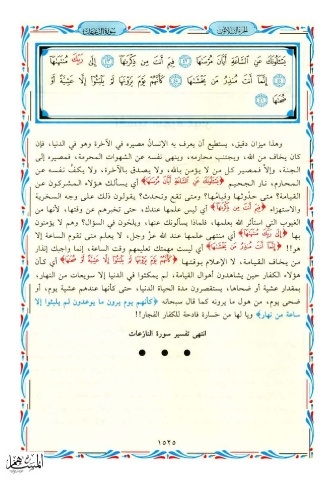 سورة النازعات
الجزء الثلاثون
يَسْـَٔلُونَكَ عَنِ ٱلسَّاعَةِ أَيَّانَ مُرْسَىٰهَا ﴿٤٢﴾ فِيمَ أَنتَ مِن ذِكْرَىٰهَآ ﴿٤٣﴾ إِلَىٰ رَبِّكَ مُنتَهَىٰهَآ
﴿٤٤﴾ إِنَّمَآ أَنتَ مُنذِرُ مَن يَخْشَىٰهَا ﴿٤٥﴾ كَأَنَّهُمْ يَوْمَ يَرَوْنَهَا لَمْ يَلْبَثُوٓا۟ إِلَّا عَشِيَّةً أَوْ
ضُحَىٰهَا ﴿٤٦﴾
وهذا ميزان دقيق، يستطيع أن يعرف به الإنسان مصيره في الآخرة وهو في الدنيا، فإن
كان يخاف من الله، ويجتنب محارمه، وينهى نفسه عن الشهوات المحرمة، فمصيره إلى
الجنة، وإلا فمصير كل من لا يؤمن بالله، ولا يصدق بالآخرة، ولا يكف نفسه عن
المحارم، نار الجحيم ﴿يَسْـَٔلُونَكَ عَنِ ٱلسَّاعَةِ أَيَّانَ مُرْسَىٰهَا﴾ أي يسألك هؤلاء المشركون عن
القيامة؟ متى حدوثها وقيامها؟ ومتى تقع وتحدث؟ يقولون ذلك على وجه السخرية
والاستهزاء ﴿فِيمَ أَنتَ مِن ذِكْرَىٰهَآ﴾ أي ليس علمها عندك، حتى تخبرهم عن وقتها، لأنها من
الغيوب التي استأثر الله بعلمها، فلماذا يسألونك عنها، ويلحون في السؤال؟ وهم لا يؤمنون
بها ﴿إِلَىٰ رَبِّكَ مُنتَهَىٰهَآ﴾ أي منتهى علمها عند الله عز وجل، لا يعلم متى تقوم الساعة إلا
هو!! ﴿إِنَّمَآ أَنتَ مُنذِرُ مَن يَخْشَىٰهَا﴾ أي ليست مهمتك تعليمهم وقت الساعة، إنما واجبك إنذار
من يخاف القيامة، لا الإعلام بوقتها ﴿كَأَنَّهُمْ يَوْمَ يَرَوْنَهَا لَمْ يَلْبَثُوٓا۟ إِلَّا عَشِيَّةً أَوْ ضُحَىٰهَا﴾ أي كأن
هؤلاء الكفار حين يشاهدون أهوال القيامة، لم يمكثوا في الدنيا إلا سويعات من النهار،
بمقدار عشية أو ضحاها، يستقصرون مدة الحياة الدنيا، حتى كأنها عندهم عشية يوم، أو
ضحى يوم، من هول ما يرونه كما قال سبحانه ﴿كأنهم يوم يرون ما يوعدون لم يلبثوا إلا
ساعة من نهار﴾ ويا لها من خسارة فادحة للكفار الفجار!!
انتهى تفسير سورة النازعات
١٥٢٥